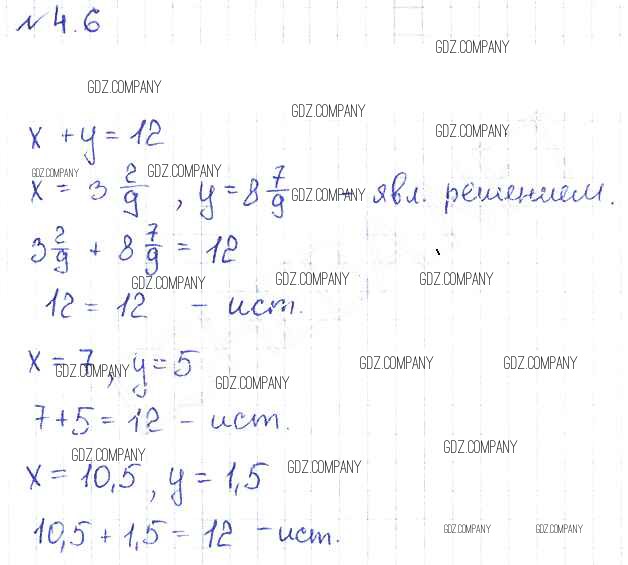 N 4.6
GDZ.COMPANY
GDZ.COMPANY
GDZ.COMPANY
x + y = 12
GDZ.COMPANY
GDZ.COMPANY GDZ.COMPANY
x = 3 2/9 , y = 8 7/9 - явл. решением.
GDZ.COMPANY
3 2/9 + 8 7/9 = 12
GDZ.COMPANY GDZ.COMPANY GDZ.COMPANY
12 = 12 - ист.
x = 7, y = 5
GDZ.COMPANY GDZ.COMPANY GDZ.COMPANY
GDZ.COMPANY
7 + 5 = 12 - ист.
GDZ.COMPANY GDZ.COMPANY
x = 10,5, y = 1,5
GDZ.COMPANY
10,5 + 1,5 = 12 - ист.
GDZ.COMPANY GDZ.COMPANY